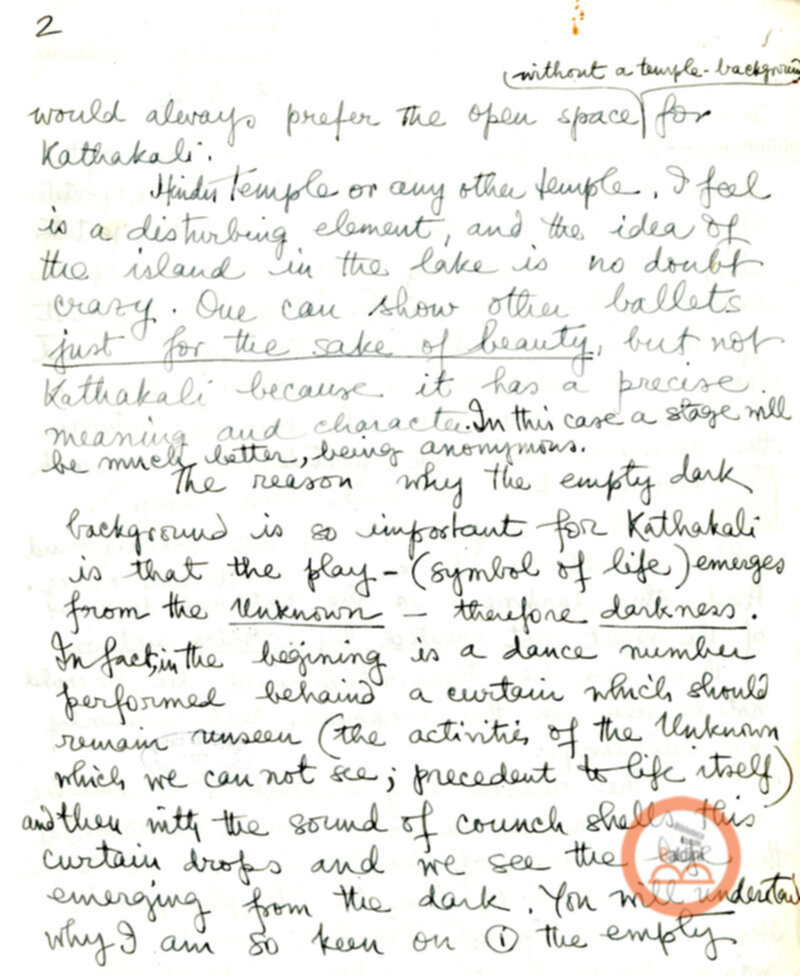 2
without a temple-background
would always prefer the open space for
Kathakali.
Hindu temple or any other temple, I feel
is a disturbing element, and the idea of
the island in the lake is no doubt
crazy. One can show other ballets
just for the sake of beauty, but not
Kathakali because it has a precise
meaning and character. In this case a stage will
be much better, being anonymous.
The reason why the empty dark
background is so important for Kathakali
is that the play - (symbol of life) emerges
from the Unknown - therefore darkness.
In fact, in the begining is a dance number
performed behaind a curtain which should
remain unseen (the activities of the Unknown
which we can not see; precedent to life itself)
and then with the sound of counch shells this
curtain drops and we see the
emerging from the dark. You will understand
why I am so keen on ① the empty